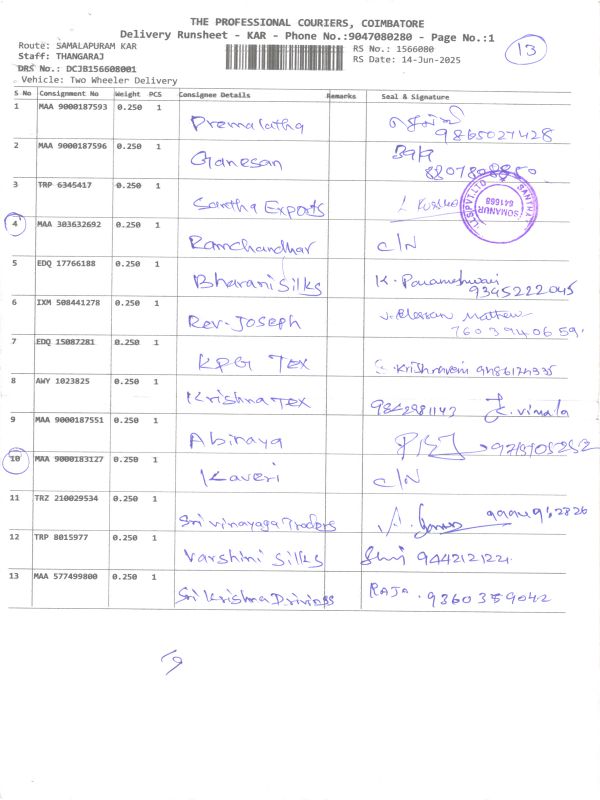 THE PROFESSIONAL COURIERS, COIMBATORE
Delivery Runsheet - KAR - Phone No.:9047080280 - Page No.:1
Route: SAMALAPURAM KAR RS No.: 1566080 13
Staff: THANGARAJ RS Date: 14-Jun-2025
DRS No.: DCJB156608001
Vehicle: Two Wheeler Delivery
S No Consignment No Weight PCS Consignee Details Remarks Seal & Signature
1 MAA 9000187593 0.250 1 Premalatha 9865027428
2 MAA 9000187596 0.250 1 Ganesan
3 TRP 6345417 0.250 1 Saratha Exports SOMANUR 641668
4 MAA 303632692 0.250 1 Ramchandhar C/N
5 EDQ 17766188 0.250 1 Bharani Silks K. Parameshwari 9345222045
6 IXM 508441278 0.250 1 Rev-Joseph Mathew 7603940659
7 EDQ 15087281 0.250 1 KPG TEX
8 AWY 1023825 0.250 1 Krishna TEX 9842981143 K. vimala
9 MAA 9000187551 0.250 1 Abinaya
10 MAA 9000183127 0.250 1 Kaveri C/N
11 TRZ 210029534 0.250 1 Sri vinayaga Traders
12 TRP 8015977 0.250 1 Varshini Silks 9442121221
13 MAA 577499800 0.250 1 Sri Krishna RAJA. 9360359042